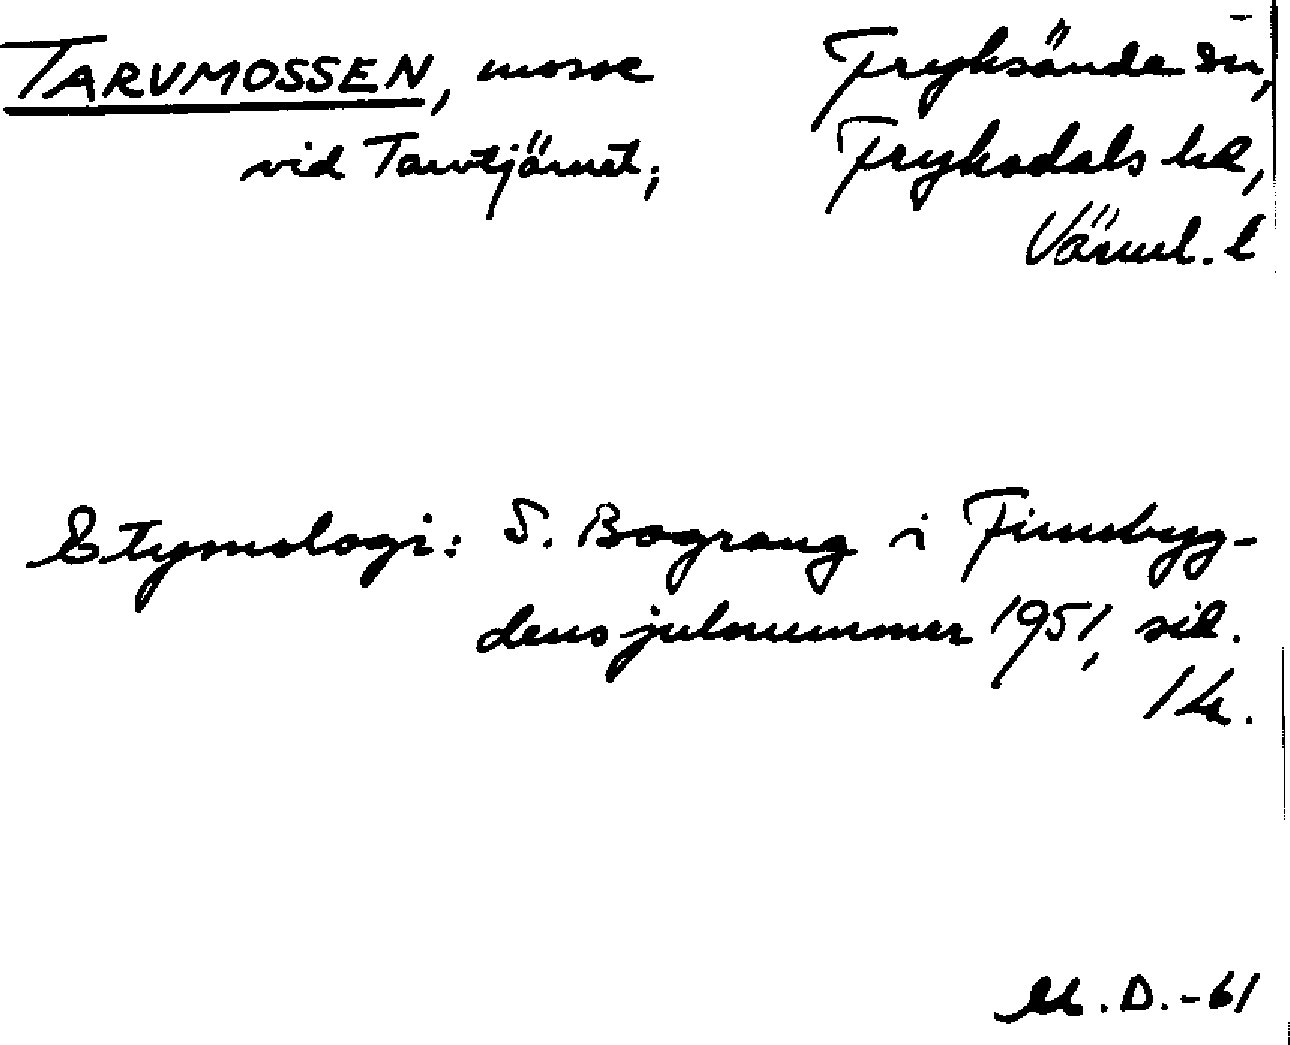 TARVMOSSEN, mosse
vid Tarvtjärnet;
Fryksände sn,
Fryksdals hd,
Värml. l
Etymologi: S. Bograng i Finnbyg-
dens julnummer 1951, sid.
14.
M. D. -61